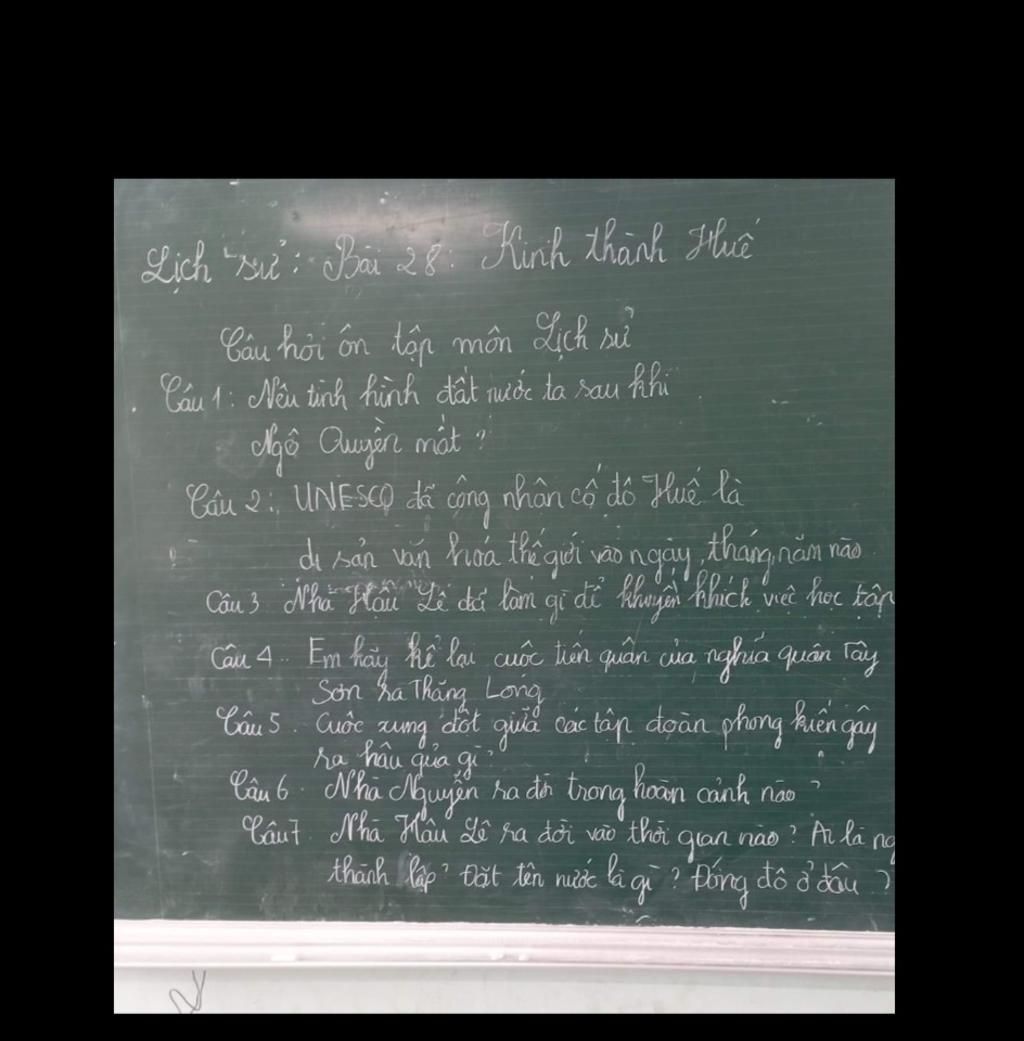 Lịch sử: Bài 28: Kinh thành Huế
Câu hỏi ôn tập môn Lịch sử
Câu 1: Nêu tình hình đất nước ta sau khi
Ngô Quyền mất ?
Câu 2: UNESCO đã công nhân cố đô Huế là
di sản văn hoá thế giới vào ngày, tháng, năm nào
Câu 3. Nhà Hậu Lê đã làm gì để khuyến khích việc học tập
Câu 4. Em hãy kể lại cuộc tiến quân của nghĩa quân Tây
Sơn ra Thăng Long
Câu 5. Cuộc xung đột giữa các tập đoàn phong kiến gây
ra hậu qủa gì?
Câu 6. Nhà Nguyễn ra đời trong hoàn cảnh nào ?
Câu 7. Nhà Hậu Lê ra đời vào thời gian nào? Ai là ng
thành lập? Đặt tên nước là gì? Đóng đô ở đâu ?